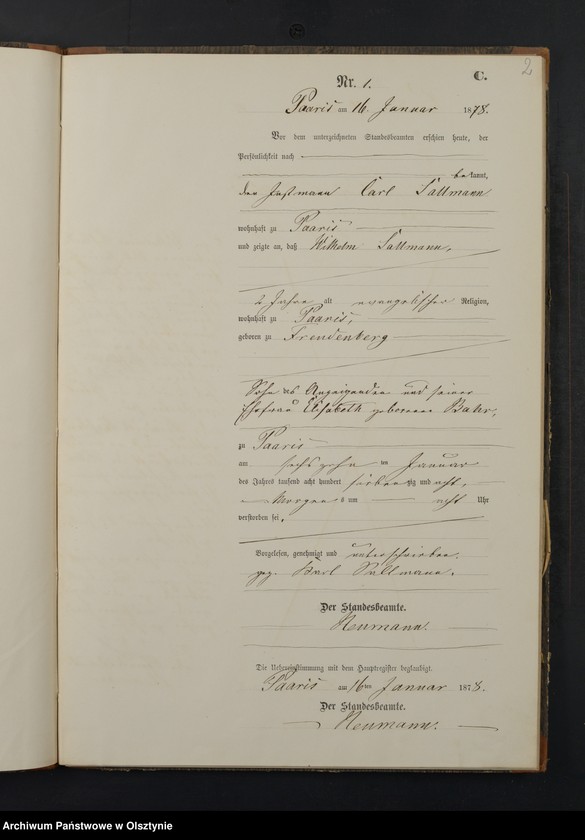 2
C.
Nr. 1.
Paaris am 16. Januar 1878.
Vor dem unterzeichneten Standesbeamten erschien heute, der
Persönlichkeit nach
bekannt,
der Instmann Carl Sallmann
wohnhaft zu Paaris
und zeigte an, daß Wilhelm Sallmann,
2 Jahre alt evangelischer Religion,
wohnhaft zu Paaris,
geboren zu Freudenberg
Sohn des Anzeigenden und seiner
Ehefrau Elisabeth geborene Bahr,
zu Paaris
am sechszehn ten Januar
des Jahres tausend acht hundert siebenzig und acht,
Morgens um acht Uhr
verstorben sei.
Vorgelesen, genehmigt und unterschrieben.
gez. Karl Sallmann.
Der Standesbeamte.
Neumann.
Die Uebereinstimmung mit dem Hauptregister beglaubigt.
Paaris am 16ten Januar 1878.
Der Standesbeamte.
Neumann.
Archiwum Państwowe w Olsztynie